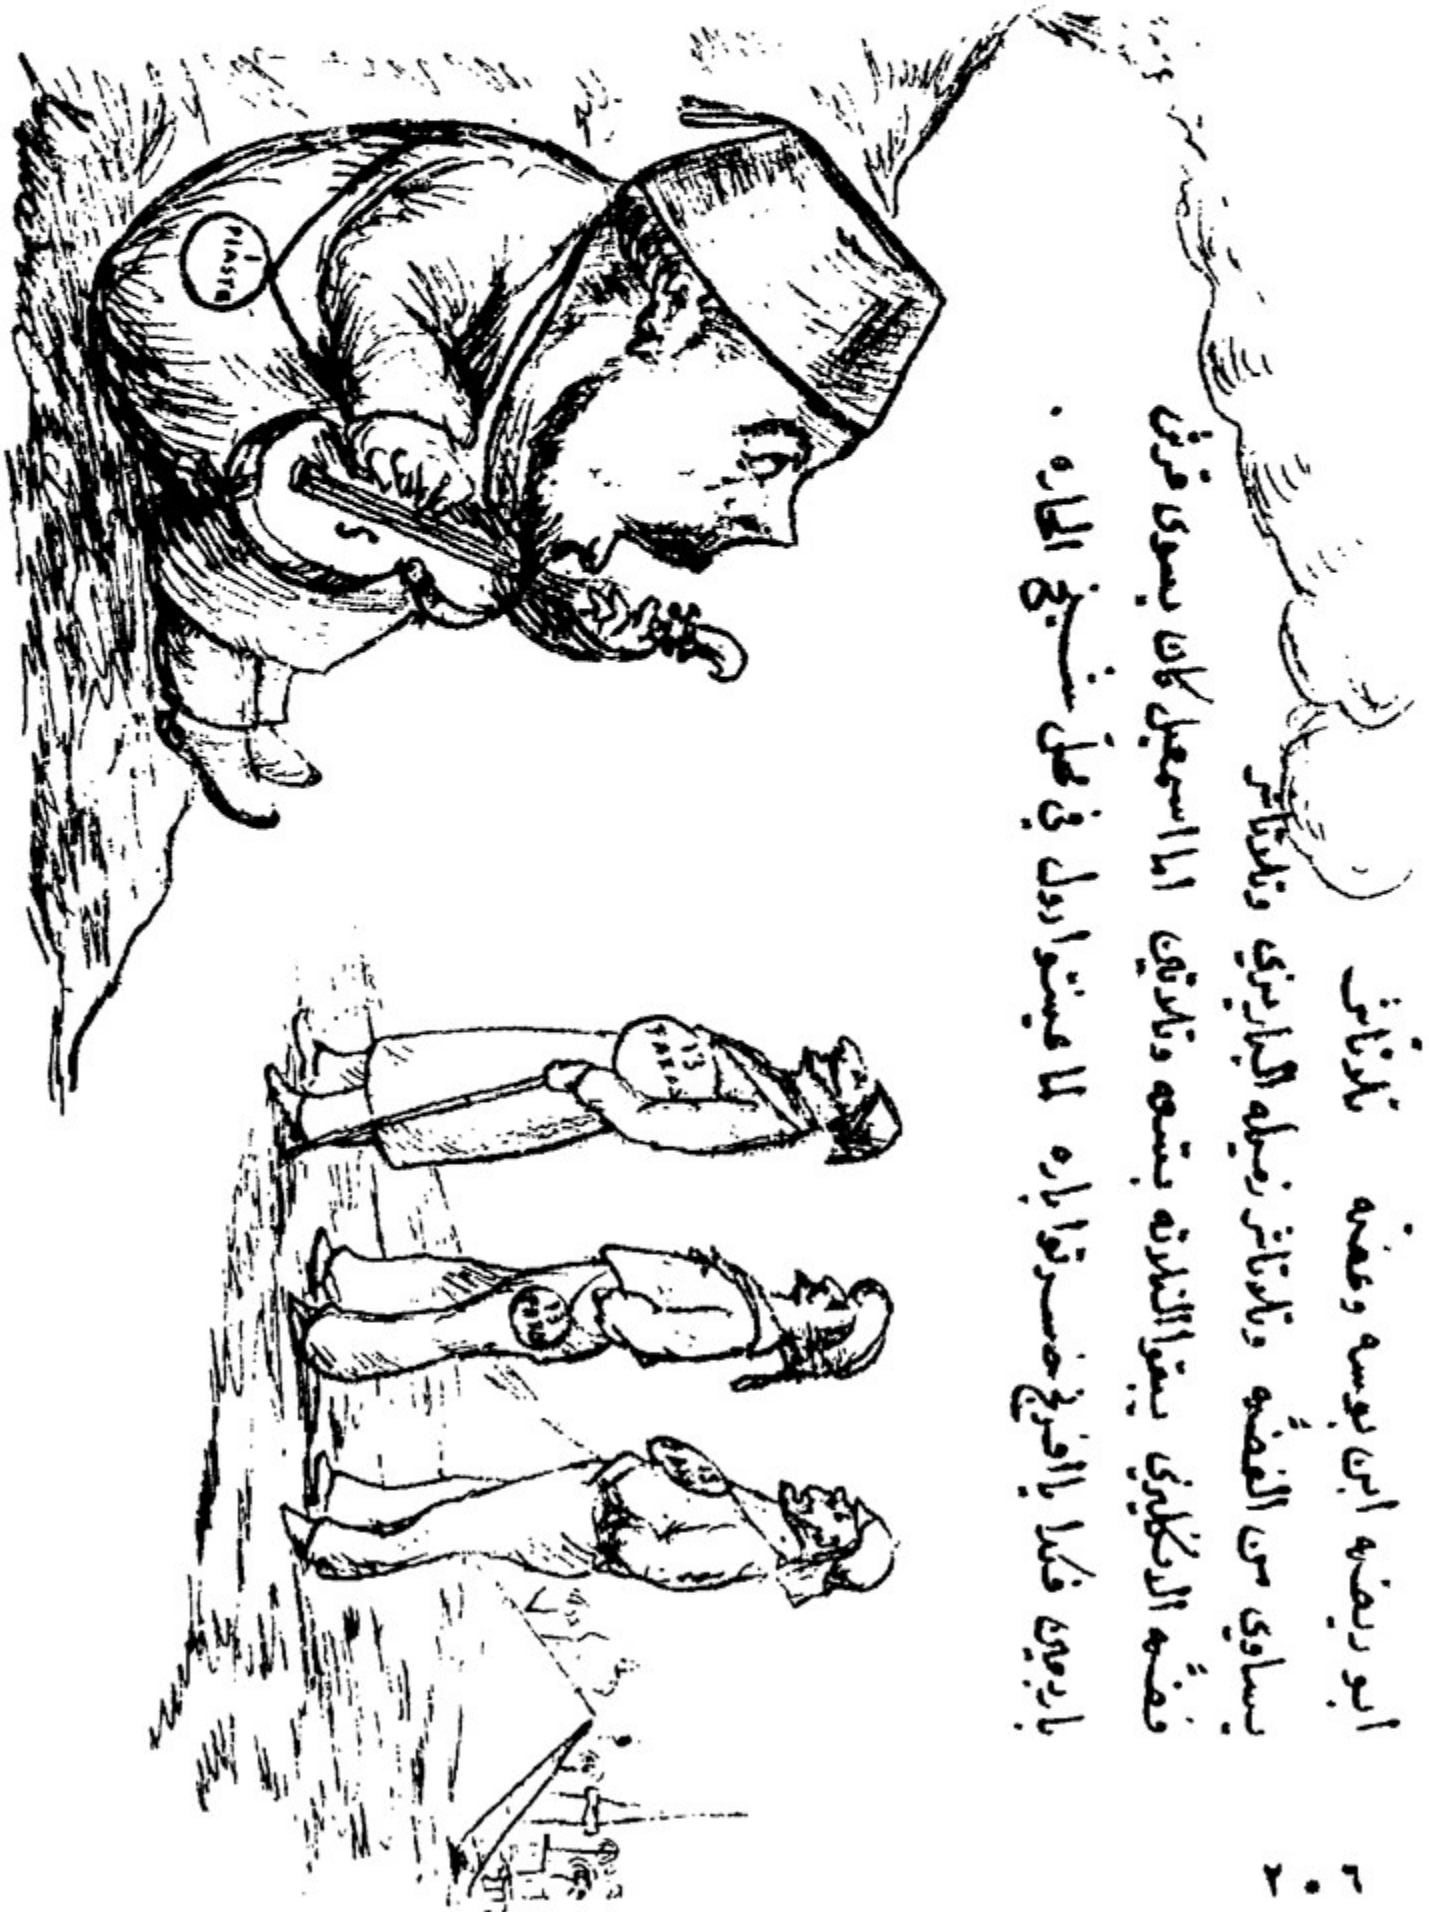 ٢٠٦
ابو ريضه ابن بوسه وعضه تلاتاشر
يساوي من الفضه وتلاتاشر زميله الباريزي وتلاتاشر
فضه الانكليزي يبقوا التلاته بتسعه وتلاتين اما اسمعيل كان يسوى قرش
باربعين فكدا يا افرنج خسرتوا باره لما عينتوا اردل في محل شيخ الحاره .
1
PIASTE
13
PARAS
13
PARA
13